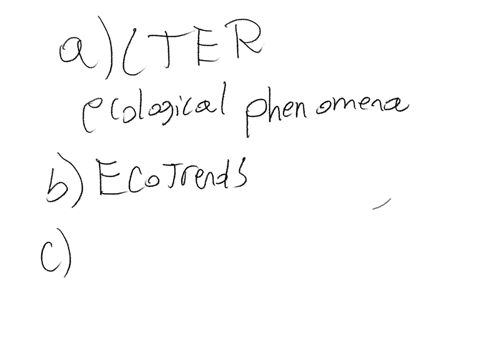 a) LTER
ecological phenomena
b) EcoTrends
c)